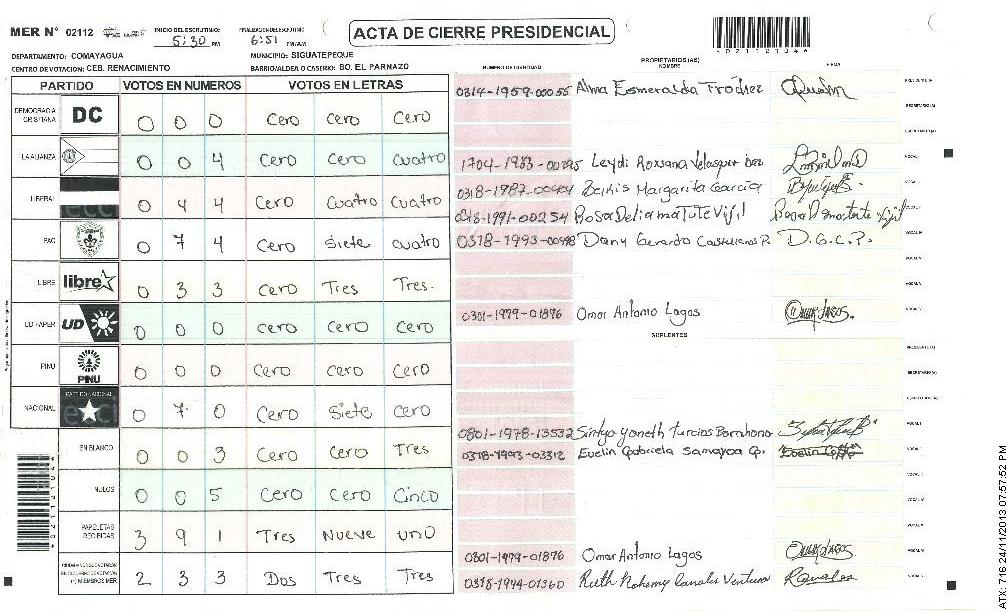 MER N° 02112
INICIO DEL ESCRUTINIO: 5:30 PM
FINALIZACION DEL ESCRUTINIO 6:51 PM/AM
ACTA DE CIERRE PRESIDENCIAL
DEPARTAMENTO: COMAYAGUA
MUNICIPIO: SIGUATEPEQUE
CENTRO DE VOTACION: CEB. RENACIMIENTO
BARRIO/ALDEA O CASERIO: BO. EL PARNAZO
NUMERO DE IDENTIDAD
PROPIETARIOS (AS)
NOMBRE
FIRMA
PARTIDO VOTOS EN NUMEROS VOTOS EN LETRAS
DEMOCRACIA CRISTIANA DC 0 0 0 Cero Cero Cero
LA ALIANZA 0 0 4 Cero Cero Cuatro
LIBERAL 0 4 4 Cero Cuatro Cuatro
PAC 0 7 4 Cero Siete Cuatro
LIBRE libre 0 3 3 Cero Tres Tres.
UD FAPER UD 0 0 0 Cero Cero Cero
PINU PINU 0 0 0 Cero Cero Cero
NACIONAL PARTIDO NACIONAL 0 7 0 Cero Siete Cero
EN BLANCO 0 0 3 Cero Cero Tres
NULOS 0 0 5 Cero Cero Cinco
PAPELETAS RECIBIDAS 3 9 1 Tres Nueve uno
CIUDADANOS QUE VOTARON EN CUADERNO DE VOTACION (+) MIEMBROS MER 2 3 3 Dos Tres Tres
0314-1959-00055 Alma Esmeralda Tróchez
PRESIDENTE (A)
SECRETARIO (A)
Leydi Roxsana Velasquez
0318-1987-00404 Belkis Margarita García
0318-1991-00254 Rosa Delia matute Vijil
Dany Gerardo Castellanos P. D.G.C.P.
0301-1979-01896 Omar Antonio Lagos
SUPLENTES
PRESIDENTE (A)
SECRETARIO (A)
0801-1978-13532 Sintya Yoneth Turcios Barahona
0318-1993-03312 Evelin Gabriela Samayoa G.
0301-1979-01896 Omar Antonio Lagos
0318-1994-01360 Ruth Nohemy Canales Ventura
ATX 716 24/11/2013 07:57:52 PM